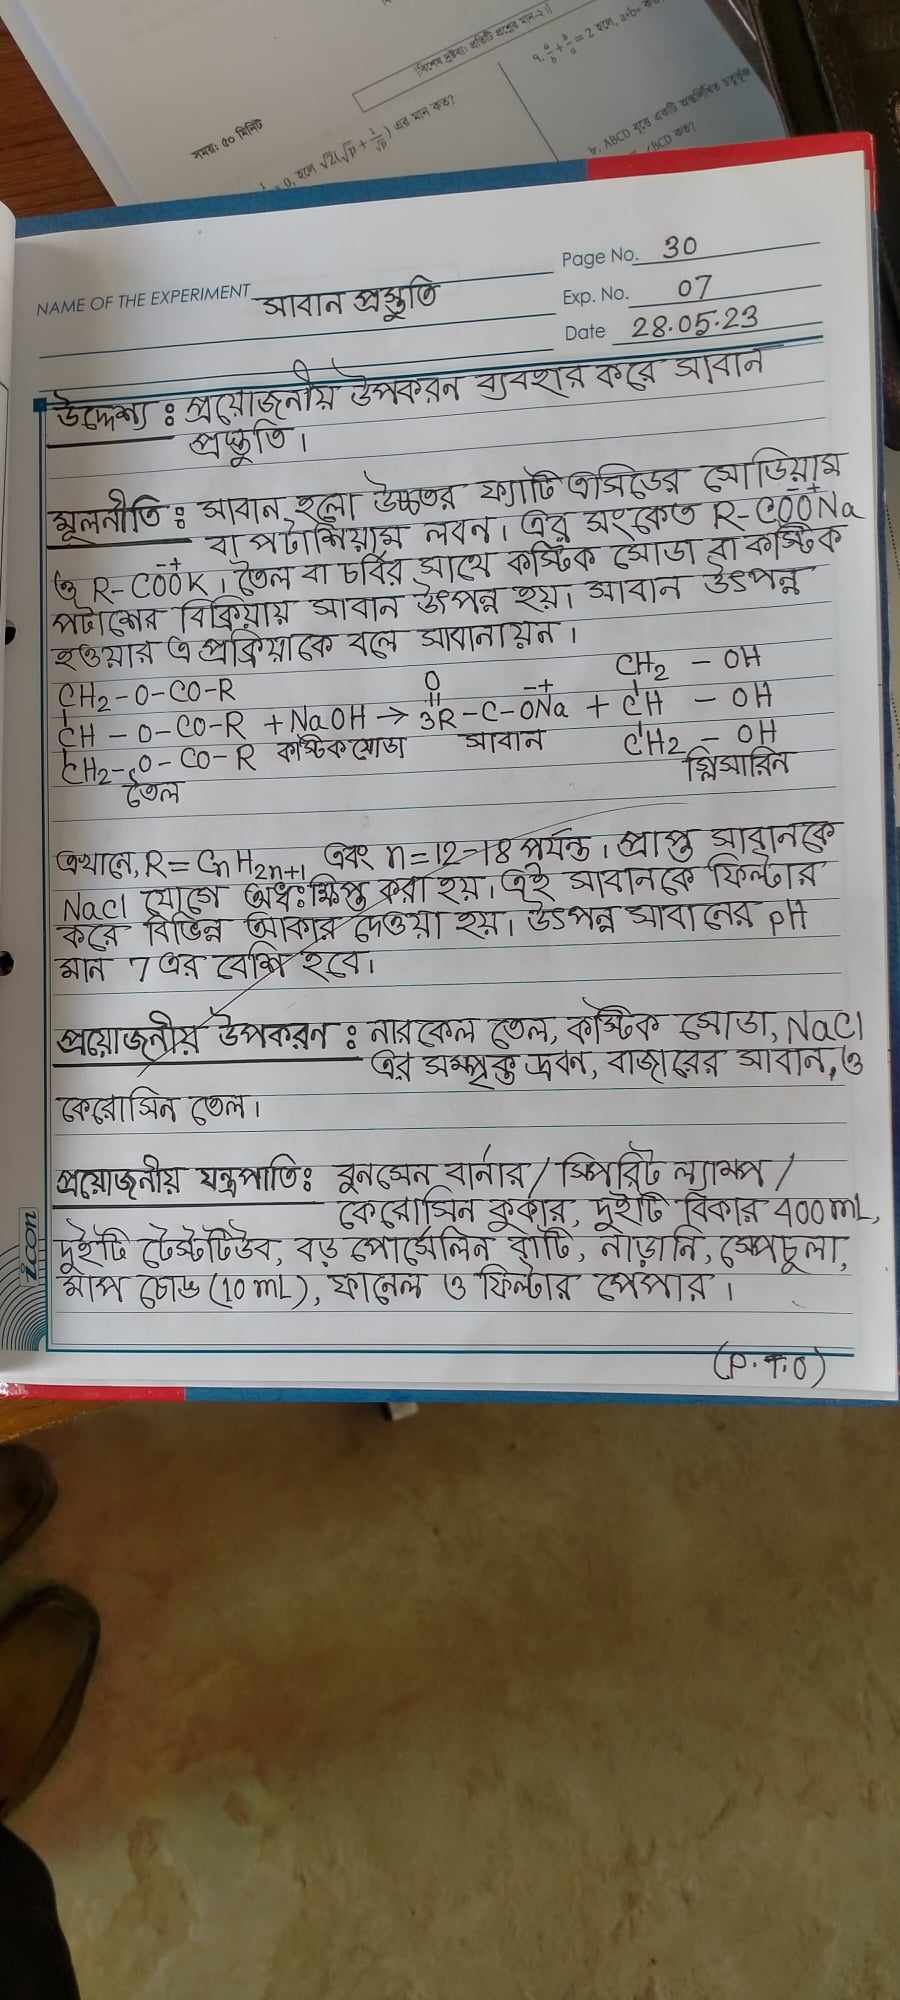 বিশেষ দ্রষ্টব্য: প্রতিটি প্রশ্নের মান-২।।
৭. a/b + b/a = 2 হলে, a+b=
সময়: ৫০ মিনিট
= 0, হলে √2(√p + 1/√p) এর মান কত?
৮. ABCD বৃত্তে একটি অন্তর্লিখিত চতুর্ভুজ
∠BCD কত?
NAME OF THE EXPERIMENT সাবান প্রস্তুতি
Page No. 30
Exp. No. 07
Date 28.05.23
উদ্দেশ্য : প্রয়োজনীয় উপকরন ব্যবহার করে সাবান
প্রস্তুতি।
মূলনীতি : সাবান হলো উচ্চতর ফ্যাটি এসিডের সোডিয়াম
বা পটাশিয়াম লবন। এর সংকেত R-COO⁻Na⁺
ও R-COO⁻K⁺। তৈল বা চর্বির সাথে কস্টিক সোডা বা কস্টিক
পটাশের বিক্রিয়ায় সাবান উৎপন্ন হয়। সাবান উৎপন্ন
হওয়ার এ প্রক্রিয়াকে বলে সাবানায়ন।
CH₂-O-CO-R O CH₂ - OH
CH - O-CO-R + NaOH → 3R-C-O⁻Na⁺ + CH - OH
CH₂-O-CO-R কস্টিক সোডা সাবান CH₂ - OH
তৈল গ্লিসারিন
এখানে, R = CnH2n+1 এবং n = 12-18 পর্যন্ত। প্রাপ্ত সাবানকে
NaCl যোগে অধঃক্ষিপ্ত করা হয়। এই সাবানকে ফিল্টার
করে বিভিন্ন আকার দেওয়া হয়। উৎপন্ন সাবানের pH
মান 7 এর বেশি হবে।
প্রয়োজনীয় উপকরন : নারকেল তেল, কস্টিক সোডা, NaCl
এর সম্পৃক্ত দ্রবন, বাজারের সাবান, ও
কেরোসিন তেল।
প্রয়োজনীয় যন্ত্রপাতি : বুনসেন বার্নার / স্পিরিট ল্যাম্প /
কেরোসিন কুকার, দুইটি বিকার 400 mL,
দুইটি টেস্টটিউব, বড় পোর্সেলিন বাটি, নাড়ানি, স্পেচুলা,
মাপ চোঙ (10 mL), ফানেল ও ফিল্টার পেপার।
icon
(P.T.O)